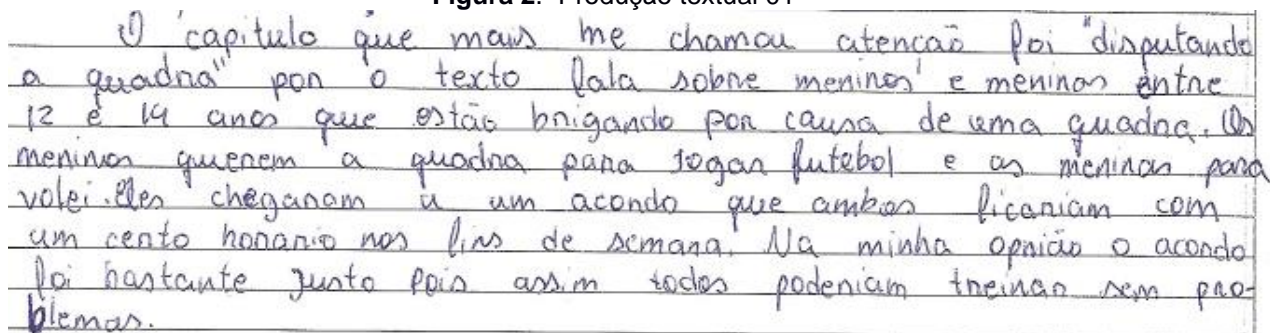 Figura 2. Produção textual 01
O capitulo que mais me chamou atenção foi "disputando
a quadra" por o texto fala sobre meninos e meninas entre
12 e 14 anos que estão brigando por causa de uma quadra. Os
meninos querem a quadra para jogar futebol e as meninas para
volei. Eles chegaram a um acordo que ambos ficariam com
um certo horario nos fins de semana. Na minha opnião o acordo
foi bastante justo pois assim todos poderiam treinar sem pro-
blemas.